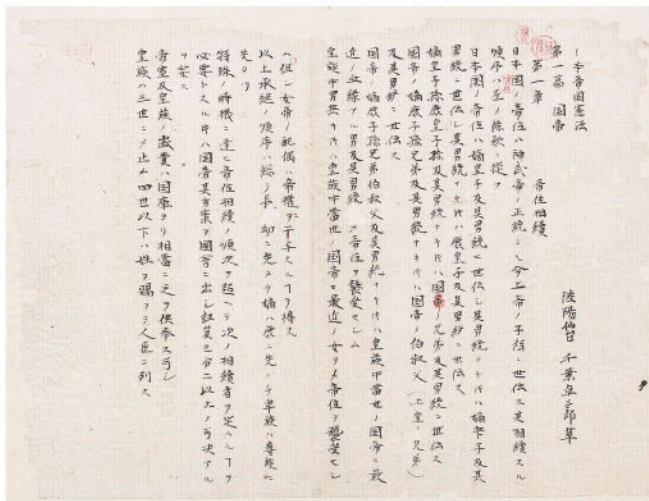 日本帝国憲法
陸陽仙台 千葉卓三郎草
第一篇 国帝
第一章 帝位相続
日本国ノ帝位ハ神武帝ノ正統タル今上帝ノ子裔ニ世伝ス其相続スル
順序ハ左ノ條款ニ従フ
日本国ノ帝位ハ嫡皇子及其男統ニ世伝シ其男統ナキ片ハ嫡衆子及其
男統ニ世伝シ其男統ナキ片ハ庶皇子及其男統ニ世伝ス
嫡皇子孫庶皇子孫及其男統ナキ片ハ国帝ノ兄弟及其男統ニ世伝ス
国帝ノ嫡庶子孫兄弟及其男統ナキ片ハ国帝ノ伯叔父(上皇ノ兄弟)
及其男統ニ世伝ス
国帝ノ嫡庶子孫兄弟伯叔父及其男統ナキ片ハ皇族中当世ノ国帝ニ最
近ノ血縁アル男及其男統ヲシテ帝位ヲ襲受セシム
皇族中男無キ片ハ皇族中当世ノ国帝ニ最近ノ女ヲシテ帝位ヲ襲受セシ
ム但シ女帝ノ配偶ハ帝権ニ干与スルヿヲ得ス
以上承継ノ順序ハ総テ長ハ幼ニ先タチ嫡ハ庶ニ先タチ卑族ハ尊族ニ
先タツ
特殊ノ時機ニ逢ヒ帝位相続ノ順次ヲ超ヘテ次ノ相続者ヲ定ムルヿヲ
必要トスル片ハ国帝其方案ヲ国会ニ出シ議員三分二以上ノ可決アル
ヲ要ス
帝室及皇族ノ歳費ハ国庫ヨリ相当ニ之ヲ供奉スヘシ
皇族ハ三世ニシテ止ム四世以下ハ姓ヲ賜フテ人臣ニ列ス